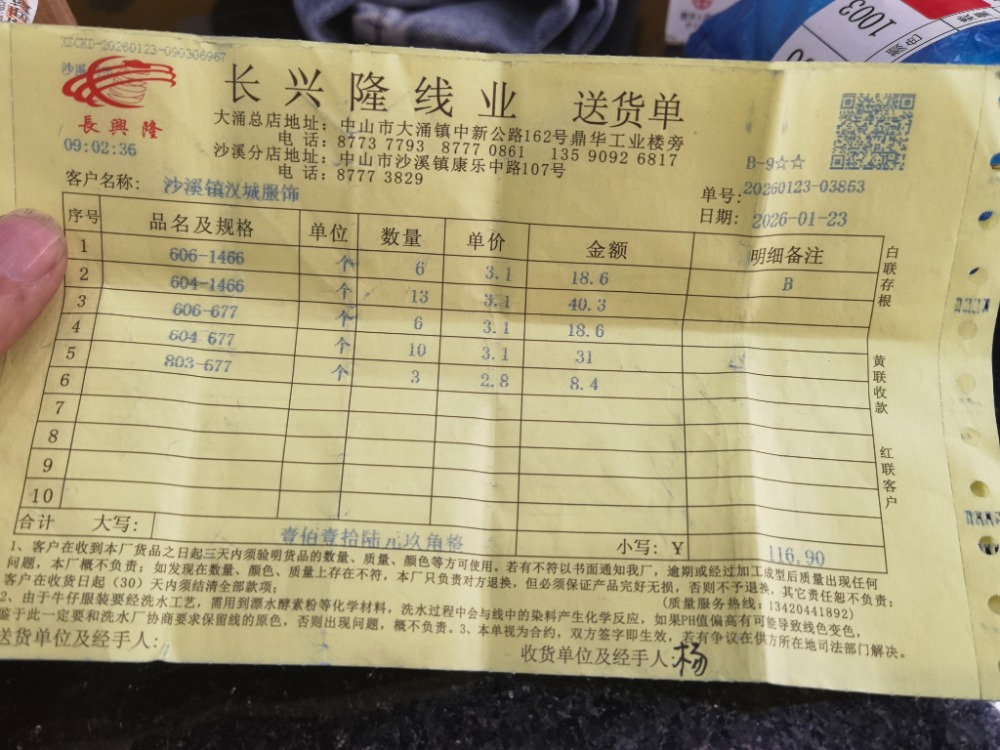 XSCKD-20260123-090306967
沙溪
長興隆
09:02:36
长兴隆线业 送货单
大涌总店地址：中山市大涌镇中新公路162号鼎华工业楼旁
电话：8773 7793 8777 0861 135 9092 6817
沙溪分店地址：中山市沙溪镇康乐中路107号
电话：8777 3829
B-9☆☆
客户名称：沙溪镇汉城服饰
单号：20260123-03853
日期：2026-01-23
序号 品名及规格 单位 数量 单价 金额 明细备注
1 606-1466 个 6 3.1 18.6 B
2 604-1466 个 13 3.1 40.3
3 606-677 个 6 3.1 18.6
4 604-677 个 10 3.1 31
5 803-677 个 3 2.8 8.4
6
7
8
9
10
白联存根
黄联收款
红联客户
合计 大写：壹佰壹拾陆元玖角整 小写：Y 116.90
1、客户在收到本厂货品之日起三天内须验明货品的数量、质量、颜色等方可使用。若有不符以书面通知我厂，逾期或经过加工成型后质量出现任何
问题，本厂概不负责；如发现在数量、颜色、质量上存在不符，本厂只负责对方退换，但必须保证产品完好无损，否则不予退换，其它责任恕不负责；
客户在收货日起（30）天内须结清全部款项； （质量服务热线：13420441892）
2、由于牛仔服装要经洗水工艺，需用到漂水酵素粉等化学材料，洗水过程中会与线中的染料产生化学反应，如果PH值偏高有可能导致线色变色，
鉴于此一定要和洗水厂协商要求保留线的原色，否则出现问题，概不负责。3、本单视为合约，双方签字即生效，若有争议在供方所在地司法部门解决。
送货单位及经手人： 收货单位及经手人：杨
1003